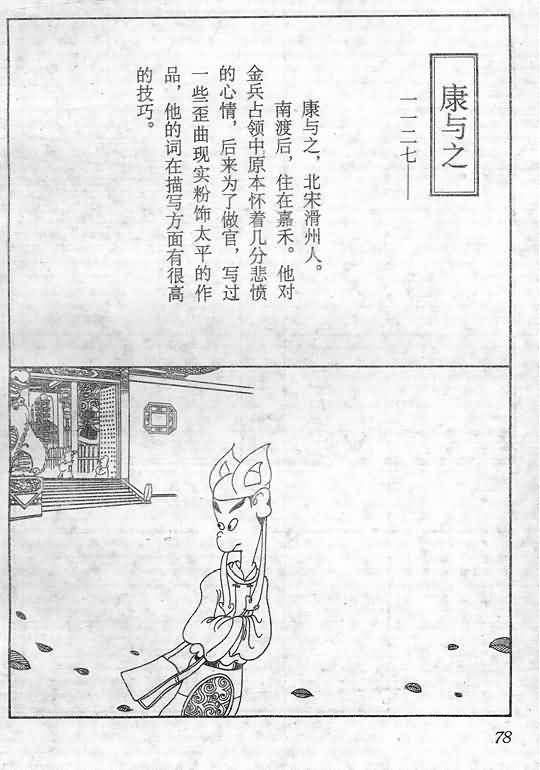 康与之
一一二七——
康与之，北宋滑州人。
南渡后，住在嘉禾。他对
金兵占领中原本怀着几分悲愤
的心情，后来为了做官，写过
一些歪曲现实粉饰太平的作
品，他的词在描写方面有很高
的技巧。
78